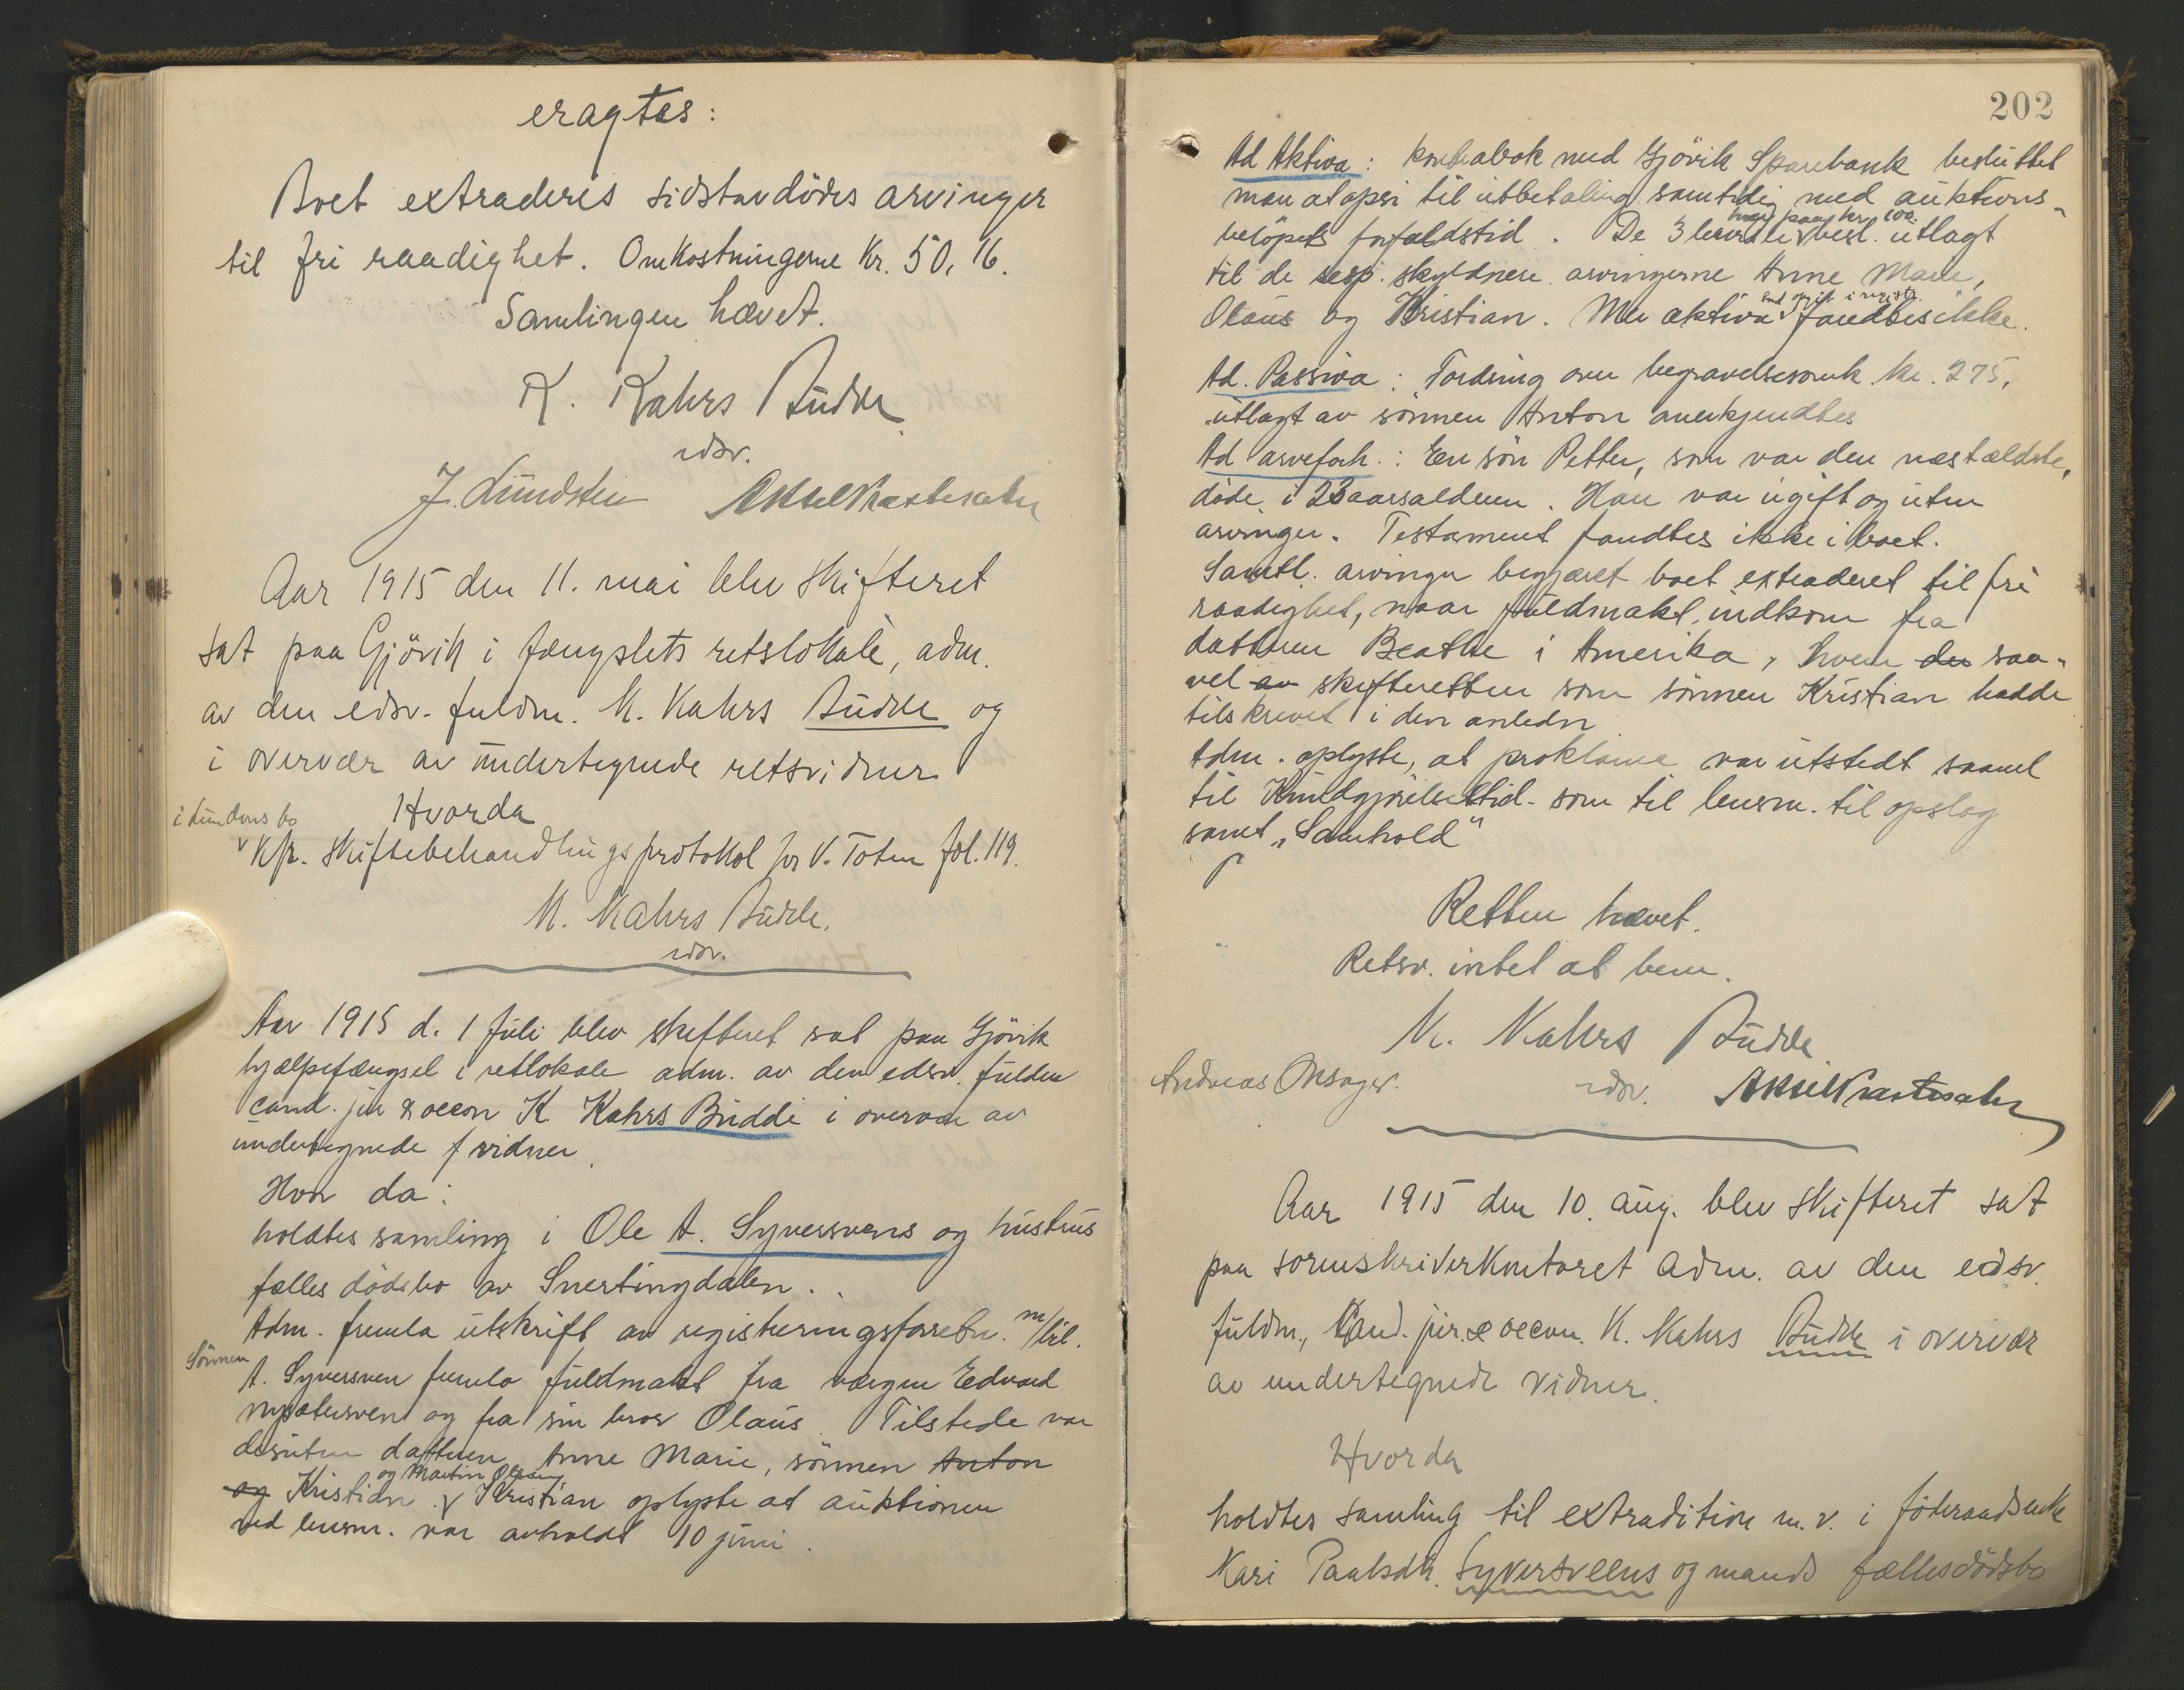 eragtes:
Boet extraderes sidstavdödes arvinger
til fri raadighet. Omkostningerne Kr. 50,16.
Samlingen hævet.
K. Kahrs Budde
edsv.
J. Lundstein Aksel
Aar 1915 den 11. mai blev skifteret
sat paa Gjövik i fængslets retslokale, adm.
av den edsv. fuldm. K. Kahrs Budde og
i overvær av undertegnede retsvidner
Hvorda
i bo
Kfr. skiftebehandlingsprotokol for V. Toten fol. 119.
K. Kahrs Budde.
edsv.
Aar 1915 d. 1 juli blev skifteret sat paa Gjövik
hjælpefængsel i retlokale adm. av den edsv. fuldm
cand. jur & oecon K. Kahrs Budde i overvær av
undertegnede vidner.
Hvor da:
holdtes samling i Ole A. Syversvens og hustrus
fælles dödsbo av Snertingdalen.
Adm. fremla utskrift av registreringsforretn. m/bil.
Sönnen
A. Syversven fremla fuldmakt fra vergen Edvard
og fra sin bror Olaus. Tilstede var
desuten datteren Anne Marie, sönnen Anton
og Martin Olsen
og Kristian. Kristian oplyste at auktionen
ved lensm. var avholdt 10 juni.
202
Ad Aktiva: kontrabok med Gjövik Sparebank besluttet
man at opsi til utbetaling samtidig med auktions-
hver paa kr. 100
belöpets forfaldstid. De 3 besl. utlagt
til de resp. skyldnere arvingerne Anne Marie,
end opgit i registr.
Olaus og Kristian. Mer aktiva fandtes ikke.
Ad. Passiva: Fordring over begravelsesomk. kr. 275,
utlagt av sönnen Anton anerkjendtes
Ad arveforh.: En sön Petter, som var den næstældste,
döde i 23aarsalderen. Han var ugift og uten
arvinger. Testament fandtes ikke i boet.
Samtl. arvinger begjæret boet extraderet til fri
raadighet, naar fuldmakt indkom fra
datteren Beathe i Amerika, hvem der saa-
vel av skifteretten som sönnen Kristian hadde
tilskrevet i den anledn
Adm. oplyste, at proklama var utstedt saavel
til Kundgjörelsestid. som til lensm. til opslag
samt „Samhold"
Retten hævet.
Retsv. intet at bem.
K. Kahrs Budde.
Andreas Onsager. edsv. Aksel
Aar 1915 den 10. aug. blev skifteret sat
paa sorenskriverkontoret adm. av den edsv.
fuldm., Cand. jur. & oecon. K. Kahrs Budde i overvær
av undertegnede vidner.
Hvorda
holdtes samling til extradition m. v. i föderaadsenke
Kari Paulsdtr. Syversveens og mands fællesdödsbo